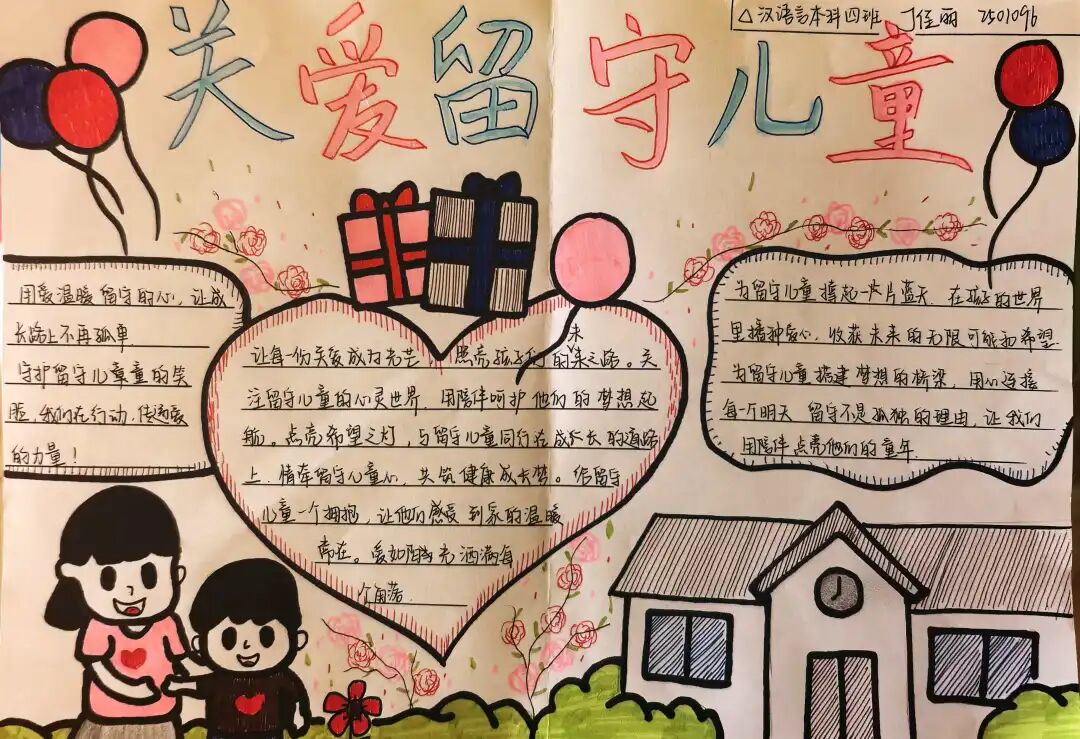 △汉语言本科四班 丁佳丽 2501096
关爱留守儿童
用爱温暖留守的心，让成
长路上不再孤单
守护留守儿童童的笑
脸，我们在行动，传递爱
的力量！
未
让每一份关爱成为光芒，照亮孩子们的来之路。关
注留守儿童的心灵世界，用陪伴呵护他们的梦想起
航。点亮希望之灯，与留守儿童同行在成长长的道路
上，情牵留守儿童心，共筑健康成长梦。给留守
儿童一个拥抱，让他们感受到家的温暖
常在。爱如阳光洒满每
个角落
为留守儿童撑起一片蓝天，在孩子的世界
里播种爱心，收获未来的无限可能和希望
为留守儿童搭建梦想的桥梁，用心连接
每一个明天 留守不是孤独的理由，让我们
用陪伴点亮他们的童年